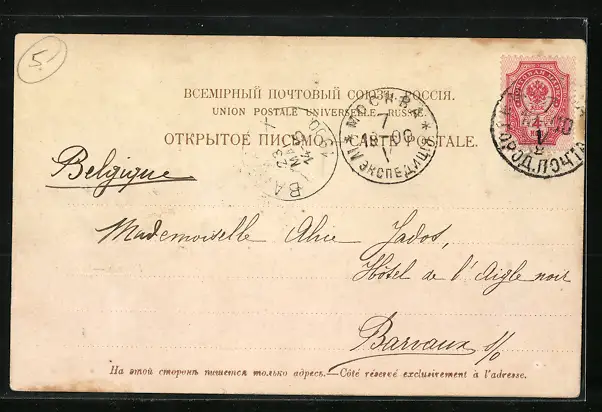 5
ВСЕМІРНЫЙ ПОЧТОВЫЙ СОЮЗЪ. РОССІЯ.
UNION POSTALE UNIVERSELLE. RUSSIE.
ОТКРЫТОЕ ПИСЬМО.—CARTE POSTALE.
МОСКВА
7
19-00
V
ЭКСПЕДИЦІЯ
23
1900
ГОРОД. ПОЧТА
Belgique
Mademoiselle
Hôtel de l'Aigle noir
Barvaux s/o
На этой сторонѣ пишется только адресъ.—Côté réservé exclusivement à l'adresse.